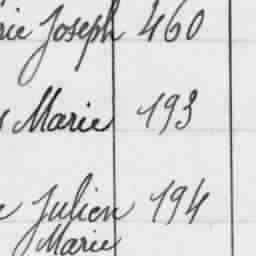 Joseph 460
Marie 193
Julien 194
Marie